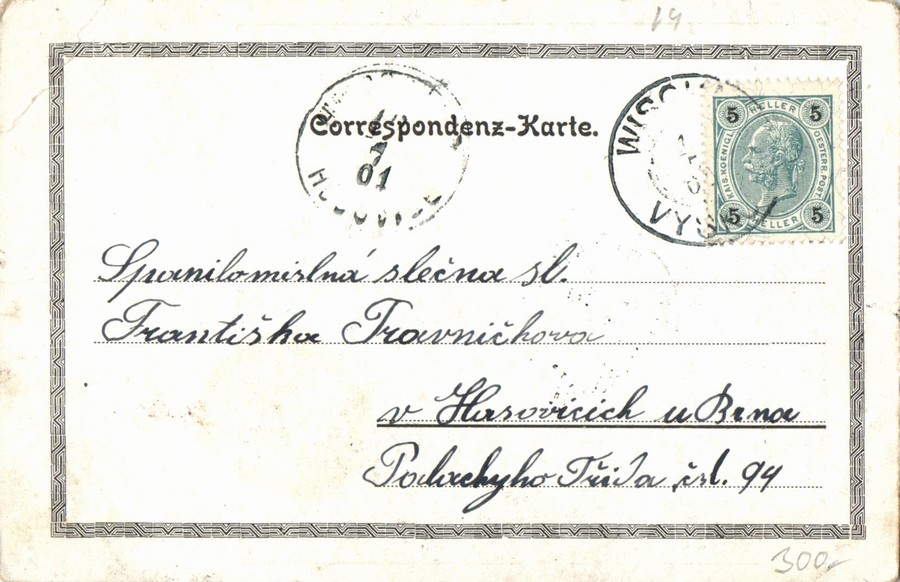 19
Correspondenz-Karte.
1
7
01
5 HELLER 5
KAIS. KOENIGL.
OESTERR. POST
5 HELLER 5
Spanilomislná slečna sl.
Františka Travničkova
v Husovicich u Brna
Palackyho Třída čsl. 94
300,-